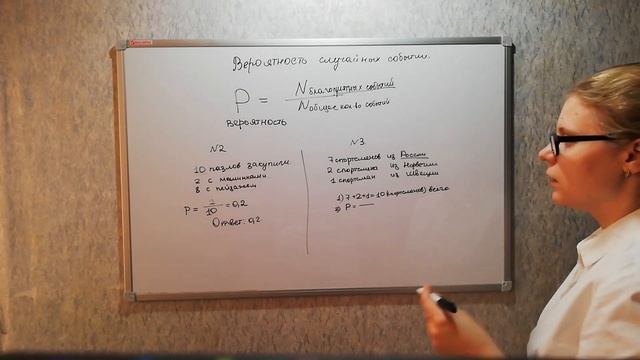 Вероятность случайных событий.
P = N благоприятных событий
N общее кол-во событий
вероятность
N2
10 пазлов закупили
2 с машинками
8 с пейзажем
P = 2/10 = 0,2
Ответ: 0,2.
N3
7 спортсменов из России
2 спортсмена из Норвегии
1 спортсмен из Швеции
1) 7+2+1=10 (спортсменов) всего
2) P = —